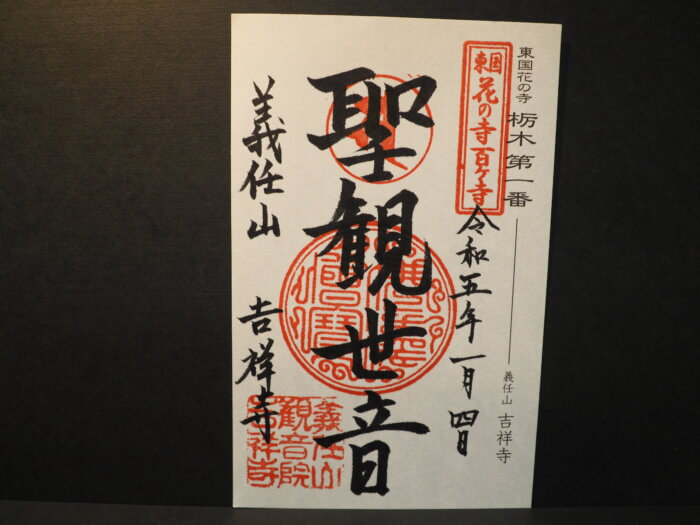 東国花の寺 栃木第一番
義任山 吉祥寺
東国
花の寺百ヶ寺
令和五年一月四日
聖観世音
義任山 吉祥寺
義任山
観音院
吉祥寺